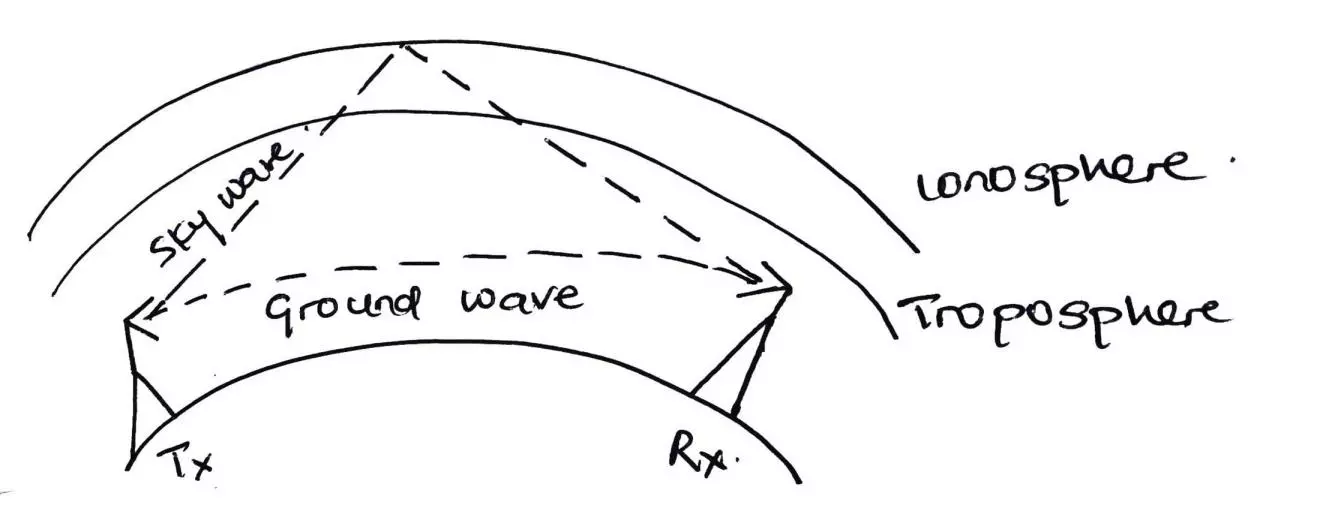 Sky wave
Ionosphere.
Ground wave
Troposphere
Tx
Rx.